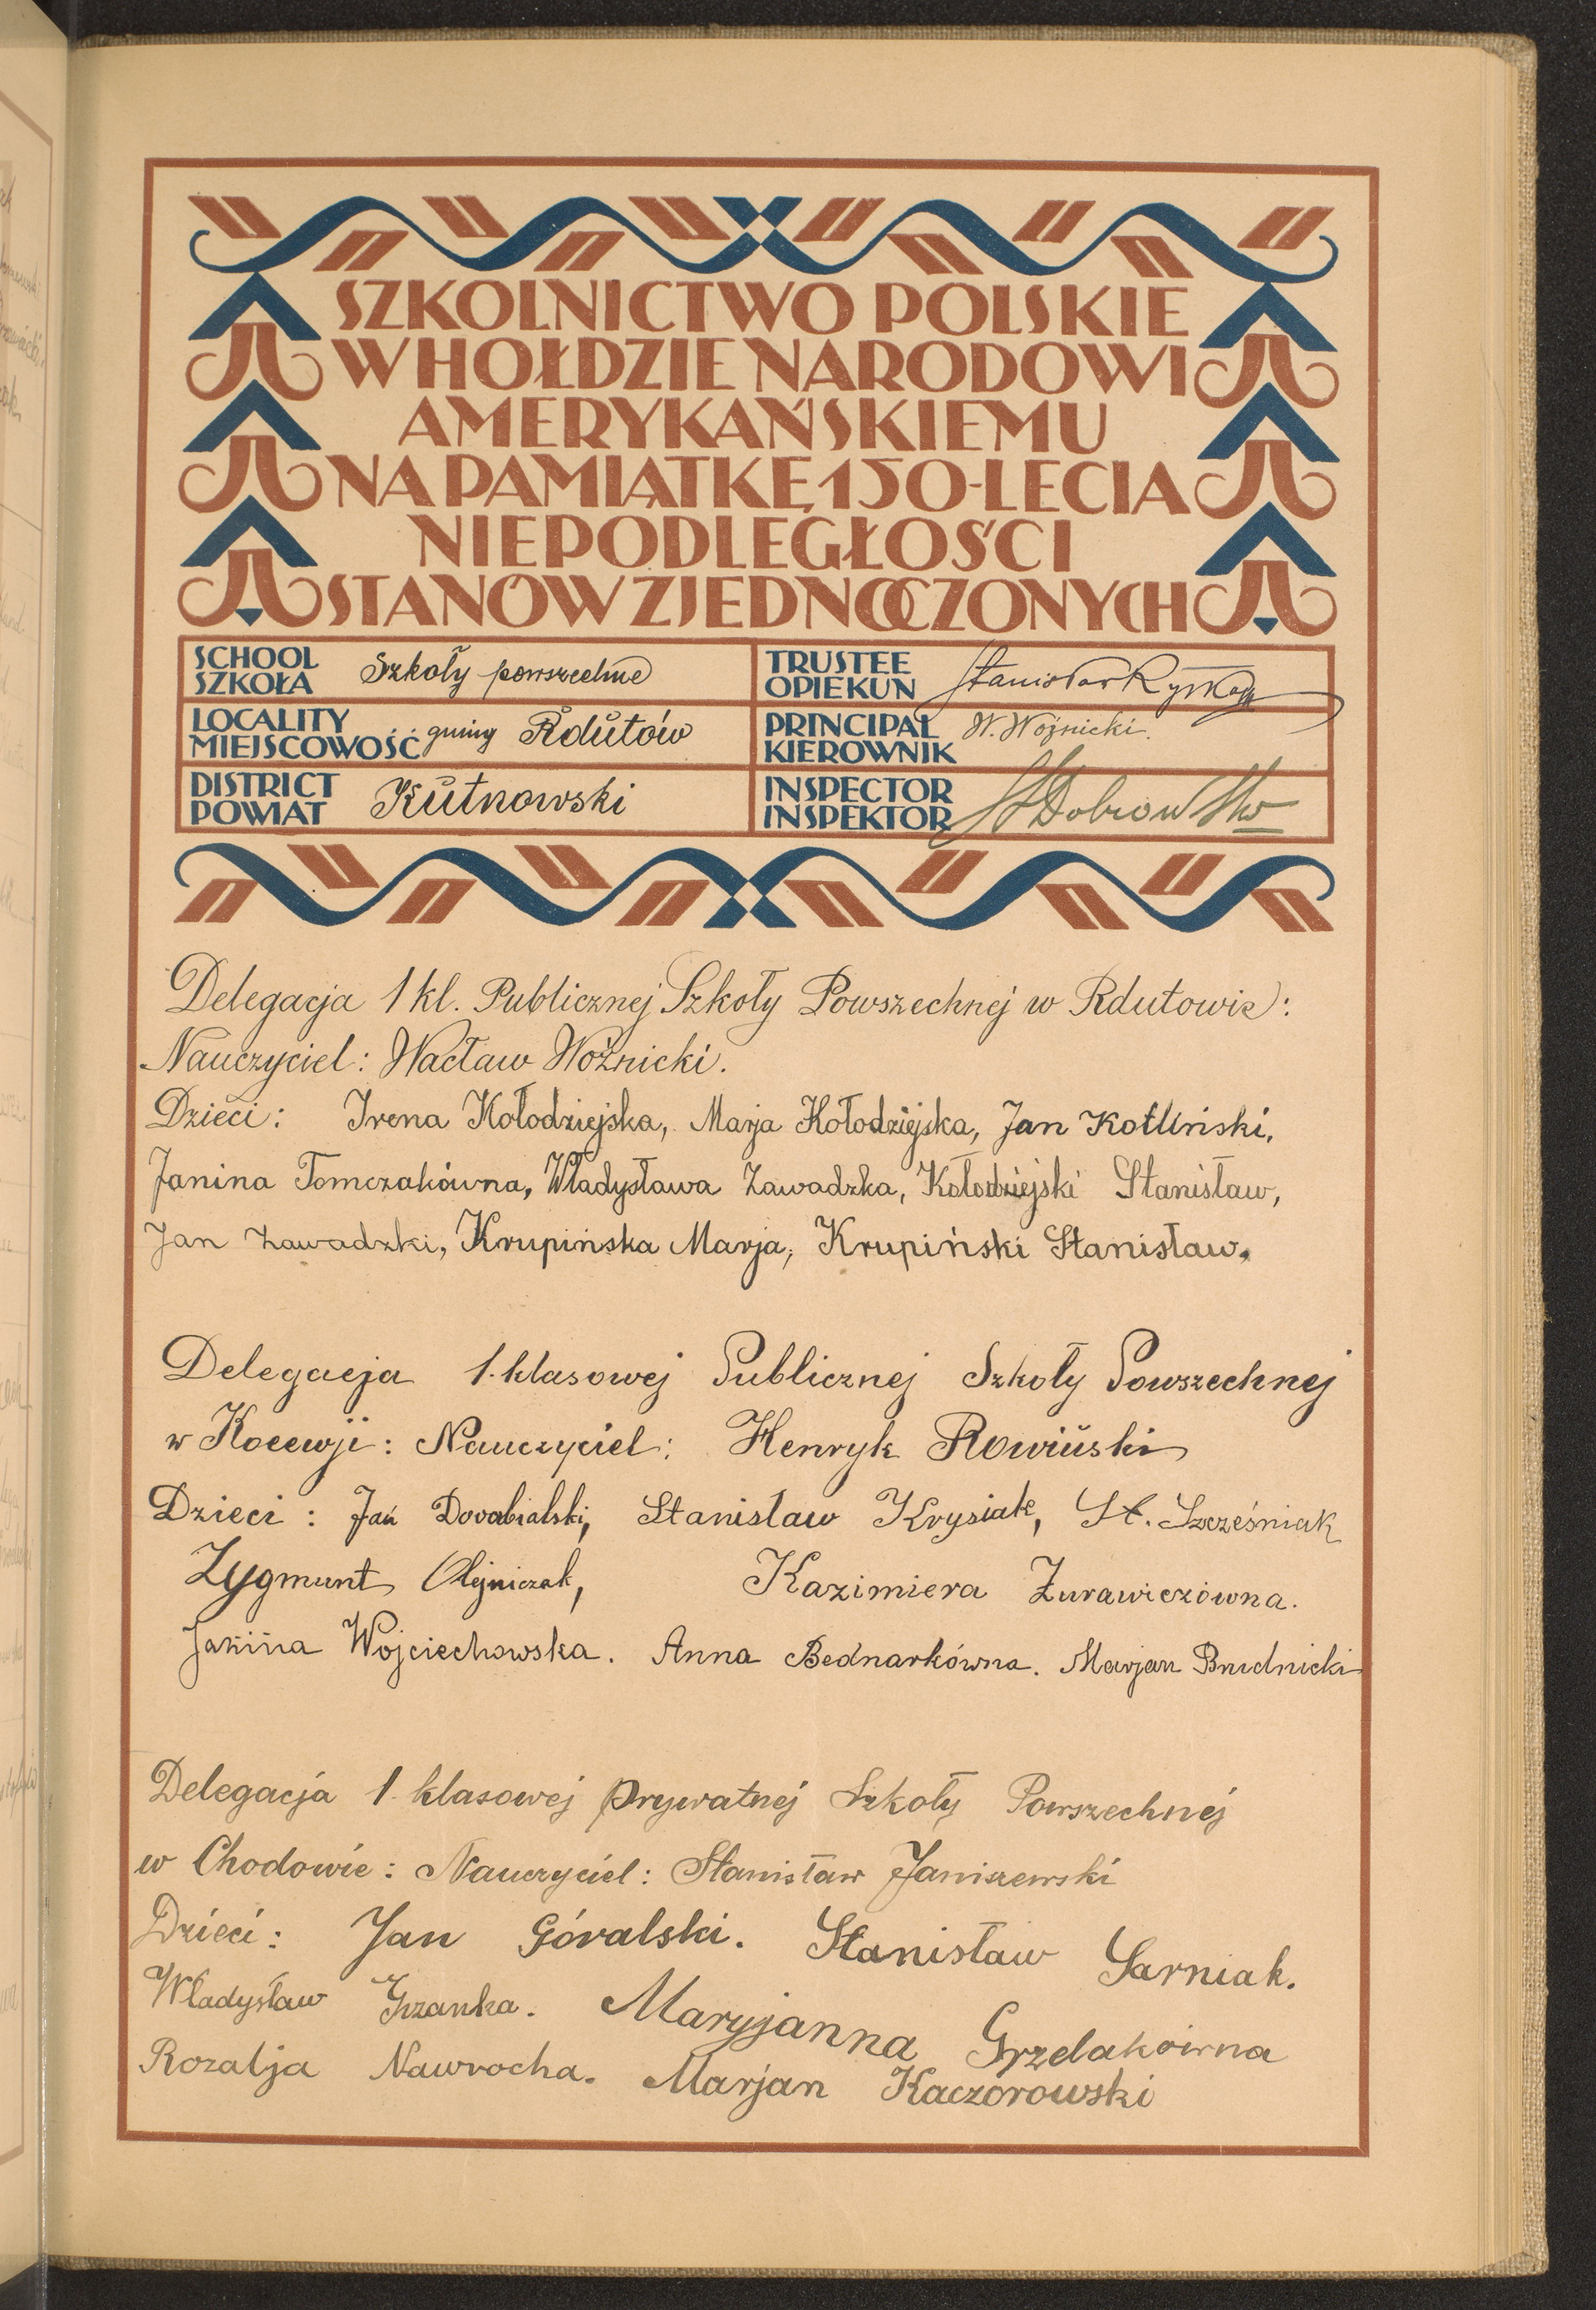 SZKOLNICTWO POLSKIE
W HOŁDZIE NARODOWI
AMERYKAŃSKIEMU
NA PAMIĄTKĘ 150-LECIA
NIEPODLEGŁOŚCI
STANÓW ZJEDNOCZONYCH
SCHOOL
SZKOŁA
Szkoły powszechne
LOCALITY
MIEJSCOWOŚĆ
gminy Rdutów
DISTRICT
POWIAT
Kutnowski
TRUSTEE
OPIEKUN
Stanisław
PRINCIPAL
KIEROWNIK
W. Woźnicki.
INSPECTOR
INSPEKTOR
Delegacja 1 kl. Publicznej Szkoły Powszechnej w Rdutowie:
Nauczyciel: Wacław Woźnicki.
Dzieci: Irena Kołodziejska, Marja Kołodziejska, Jan Kotliński,
Janina Tomczakówna, Władysława Zawadzka, Kołodziejski Stanisław,
Jan Zawadzki, Krupińska Marja, Krupiński Stanisław.
Delegacja 1. klasowej Publicznej Szkoły Powszechnej
w Kocewji: Nauczyciel: Henryk Rowiński
Dzieci: Jan Dorabialski, Stanisław Krysiak, St. Szcześniak
Zygmunt Olejniczak, Kazimiera Żurawiczówna.
Janina Wojciechowska. Anna Bednarkówna. Marjan Brudnicki
Delegacja 1. klasowej prywatnej Szkoły Powszechnej
w Chodowie: Nauczyciel: Stanisław Janiszewski
Dzieci: Jan Góralski. Stanisław Sarniak.
Władysław Grzanka. Maryjanna Grzelakówna
Rozalja Nawrocka. Marjan Kaczorowski